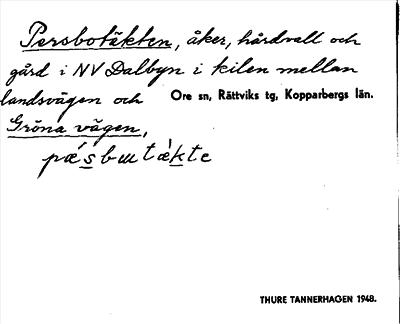 Persbotäkten, åker, hårdvall och
gård i NV Dalbyn i kilen mellan
landsvägen och Ore sn, Rättviks tg, Kopparbergs län.
Gröna vägen,
pǽsbɯtæ̀kte
THURE TANNERHAGEN 1948.